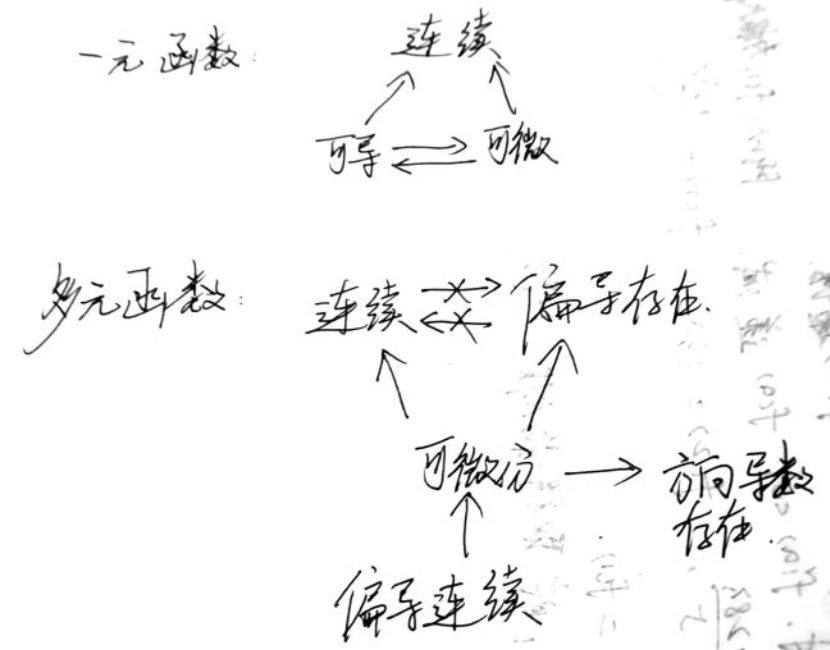 一元函数: 连续
可导 可微
多元函数: 连续 偏导存在.
可微分 方向导数
存在.
偏导连续